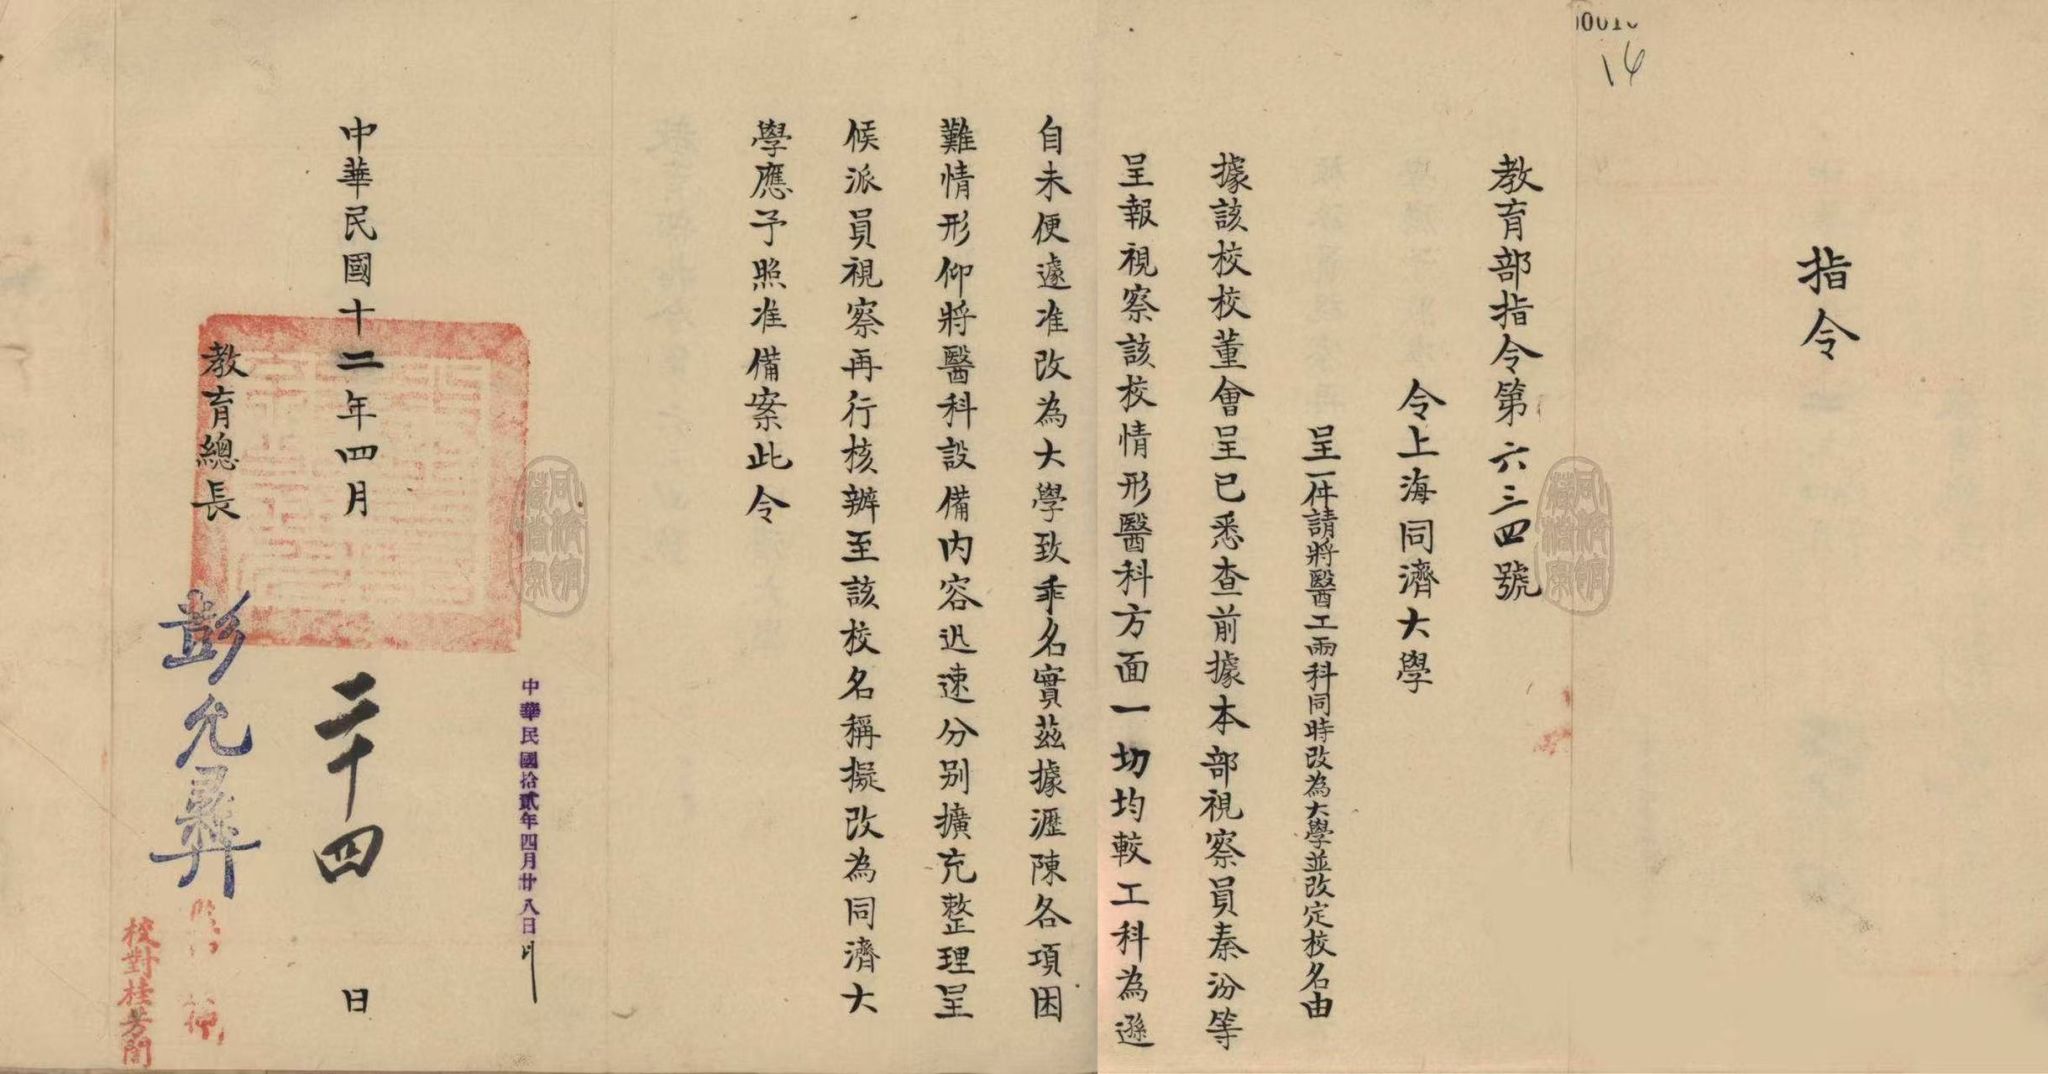 14
指令
教育部指令第六三四號
令上海同濟大學
呈一件請將醫工兩科同時改為大學並改定校名由
據該校校董會呈已悉查前據本部視察員秦汾等
呈報視察該校情形醫科方面一切均較工科為遜
自未便遽准改為大學致乖名實茲據瀝陳各項困
難情形仰將醫科設備內容迅速分別擴充整理呈
候派員視察再行核辦至該校名稱擬改為同濟大
學應予照准備案此令
中華民國拾貳年四月廿八日
中華民國十二年四月二十四日
教育總長 彭允彝
校對桂芳